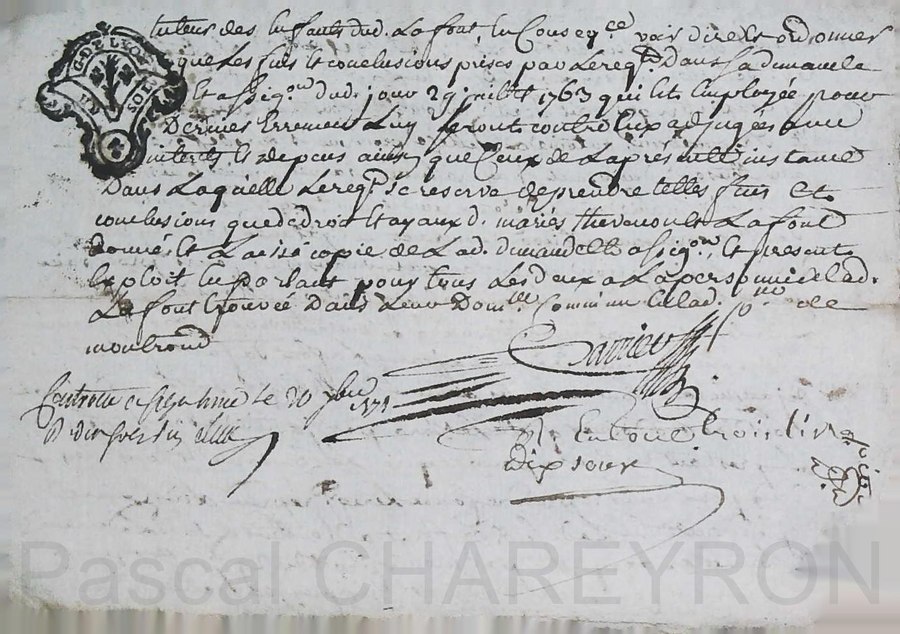 G. DE LYON
UN SOL
tuteurs des Enfants dud. Lafont, En Conseq.ce voir dire et ordonner
que Les fins et conclusions prises par Le req.t Dans sa demande
Et assig.on dud. jour 29 juillet 1763 qui Est Employée pour
Derniers Errements Luy seront contre Eux adjugées avec
interets et depens ainsy que Ceux de La présente instance
Dans Laquelle Le req.t se reserve de prendre telles fins et
conclusions que de droit Et ayaux d. mariés thevenon et Lafont
donné et Laissé copie de Lad. demande et assig.on, Et present
Exploit En parlant pour tous Les deux a La personne de lad.
Lafont trouvée Dans Leur Domi.lle Comm'un Aud. de
montrond
Barrieu
Controllé a le 20
Reçu
Et En tout trois livre
dix sous
Pascal CHAREYRON